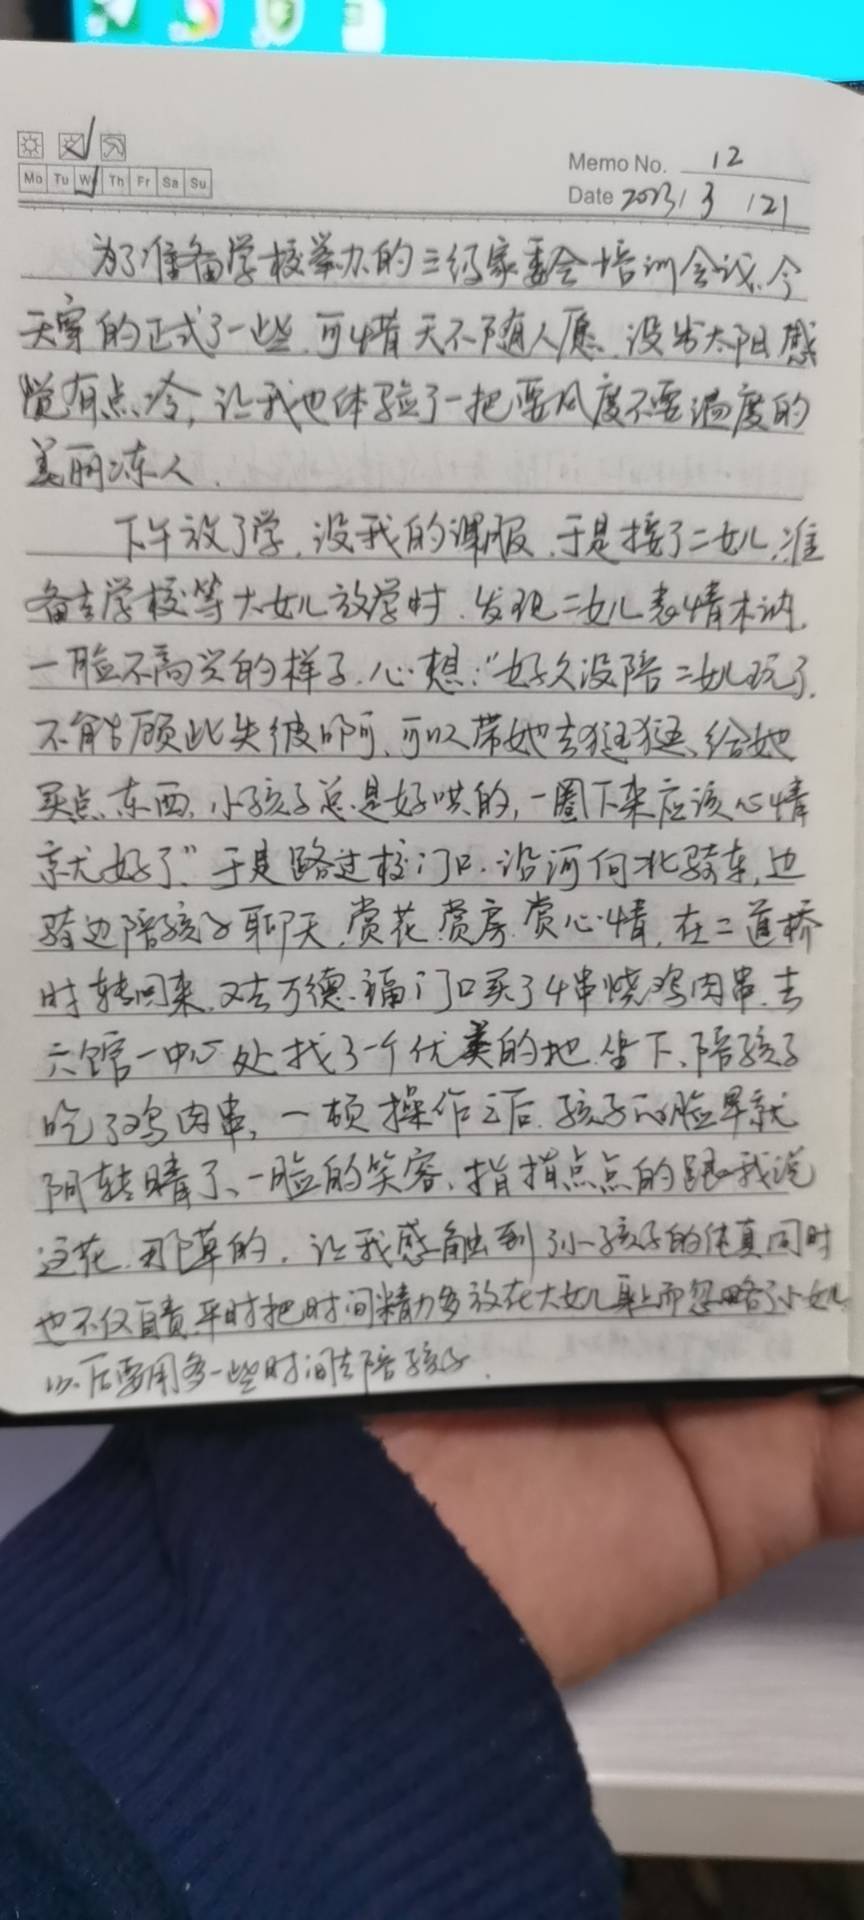 Memo No. 12
Mo Tu We Th Fr Sa Su
Date 2023 / 3 / 21
为了准备学校举办的三级家委会培训会议,今
天穿的正式了一些,可惜天不随人愿,没出太阳感
觉有点冷,让我也体验了一把要风度不要温度的
美丽冻人.
下午放了学,没我的课服,于是接了二女儿,准
备去学校等大女儿放学时,发现二女儿表情木讷,
一脸不高兴的样子,心想:“好久没陪二女儿玩了,
不能顾此失彼啊,可以带她去逛逛,给她
买点东西,小孩子总是好哄的,一圈下来应该心情
就好了”于是路过校门口,沿河向北骑车,边
骑边陪孩子聊天,赏花,赏房,赏心情,在二道桥
时转回来,又去万德福门口买了4串烧鸡肉串,去
六馆一中心处找了一个优美的地,坐下,陪孩子
吃了鸡肉串,一顿操作之后,孩子的脸早就
阴转晴了,一脸的笑容,指指点点的跟我说
这花,那草的,让我感触到了小孩子的纯真同时
也不仅自责平时把时间精力多放在大女儿身上而忽略了小女儿
以后要用多一些时间去陪孩子.